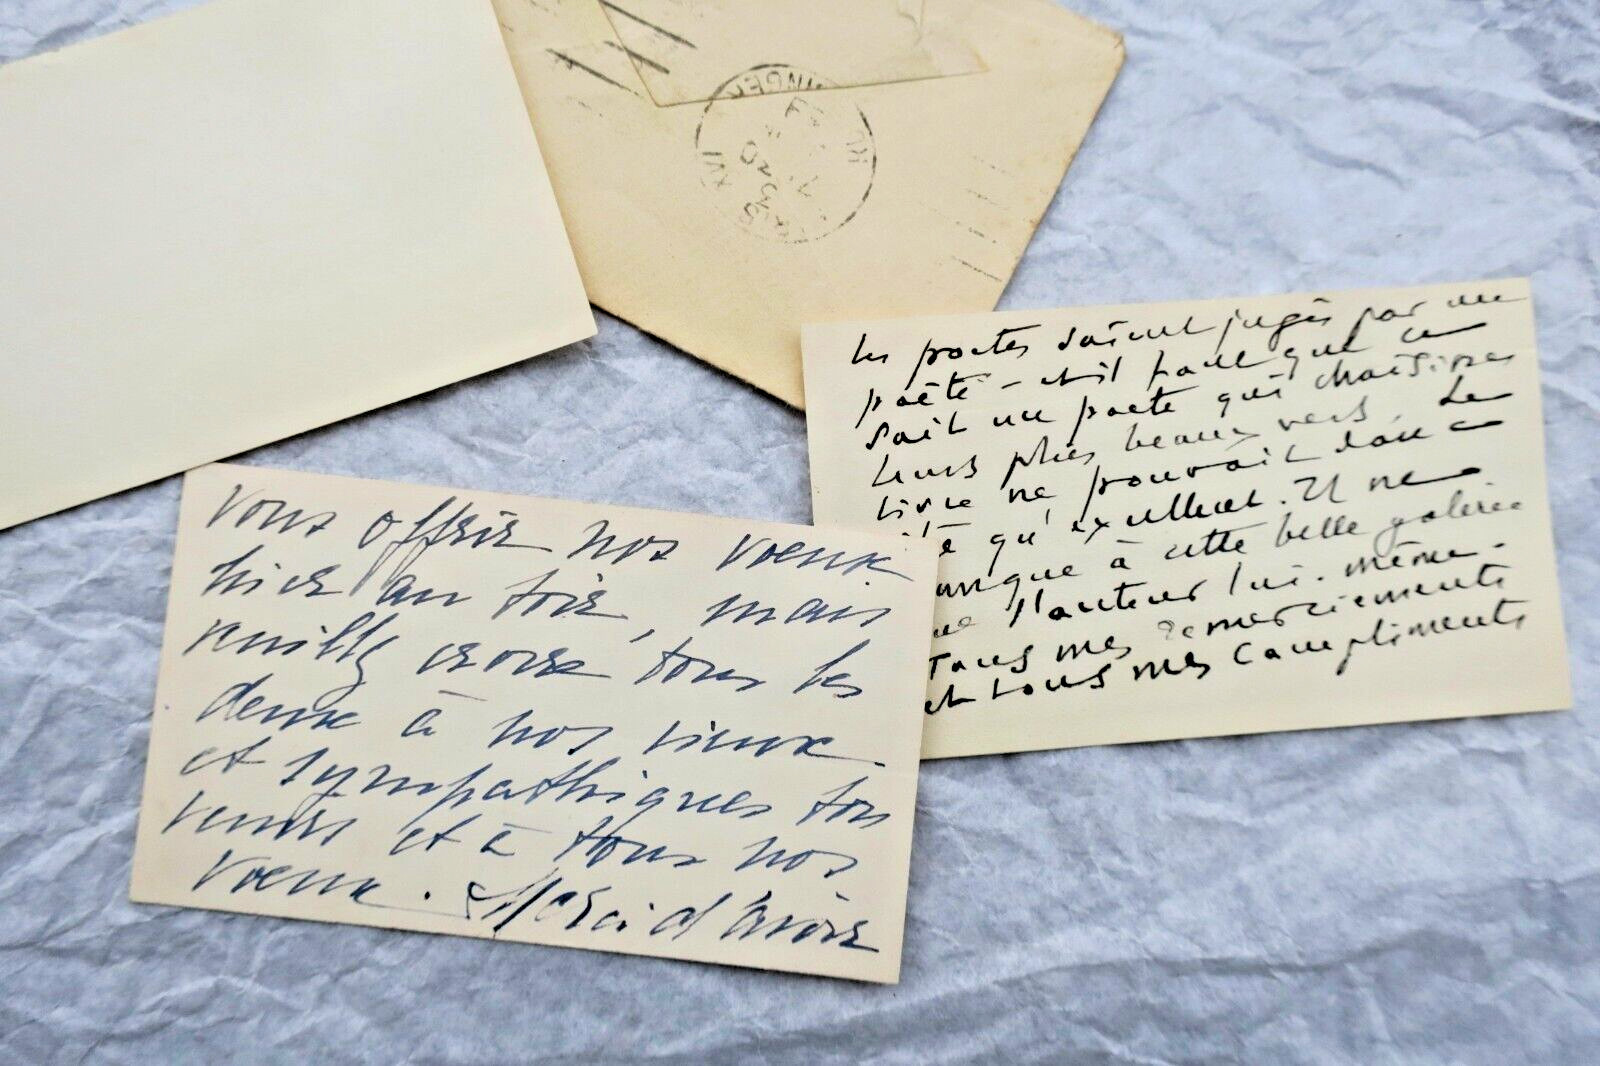 vous offrir nos vœux
hier au soir, mais
veuillez croire tous les
deux à nos vieux
et sympathiques sou
venirs et à tous nos
vœux. Merci d'avoir
les poètes soient jugés par un
poète – et il faut que ce
soit un poète qui choisisse
leurs plus beaux vers. Le
livre ne pouvait donc
être qu'excellent. Il ne
manque à cette belle galerie
que l'auteur lui-même.
Tous mes remerciements
et tous mes compliments
XVI